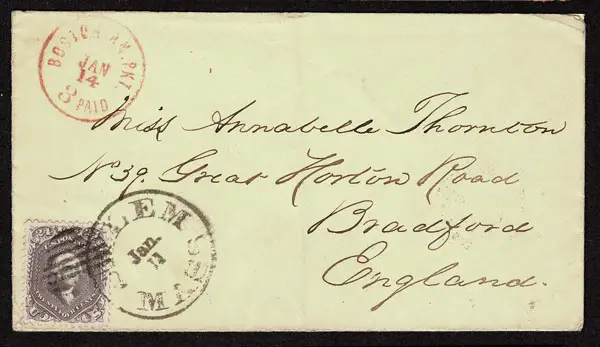 BOSTON AM. PKT.
JAN
14
3 PAID
Miss Annabelle Thornton
No 39. Great Horton Road
Bradford
England.
SALEM MASS
Jan.
13
24 24
U.S. POSTAGE